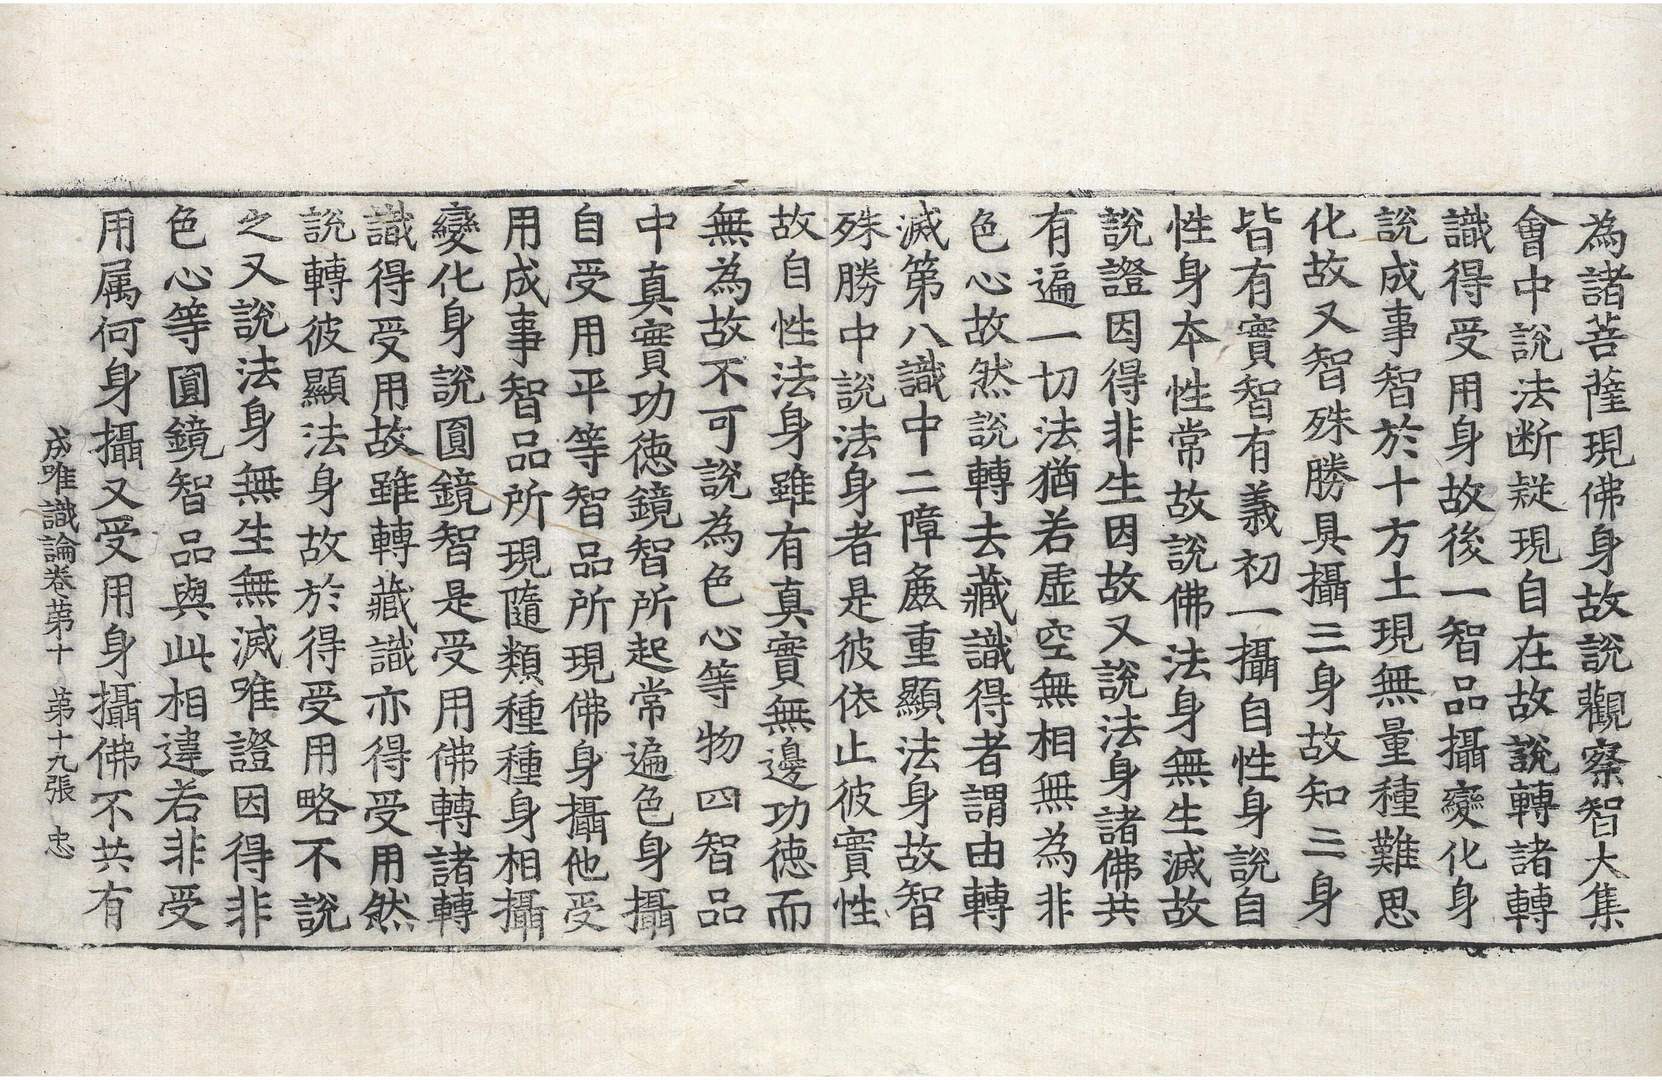 為諸菩薩現佛身故說觀察智大集
會中說法断疑現自在故說轉諸轉
識得受用身故後一智品攝變化身
說成事智於十方土現無量種難思
化故又智殊勝具攝三身故知三身
皆有實智有義初一攝自性身說自
性身本性常故說佛法身無生滅故
說證因得非生因故又說法身諸佛共
有遍一切法猶若虛空無相無為非
色心故然說轉去藏識得者謂由轉
滅第八識中二障麁重顯法身故智
殊勝中說法身者是彼依止彼實性
故自性法身雖有真實無邊功徳而
無為故不可說為色心等物四智品
中真實功徳鏡智所起常遍色身攝
自受用平等智品所現佛身攝他受
用成事智品所現隨類種種身相攝
變化身說圓鏡智是受用佛轉諸轉
識得受用故雖轉藏識亦得受用然
說轉彼顯法身故於得受用略不說
之又說法身無生無滅唯證因得非
色心等圓鏡智品與此相違若非受
用属何身攝又受用身攝佛不共有
成唯識論卷第十 第十九張 忠